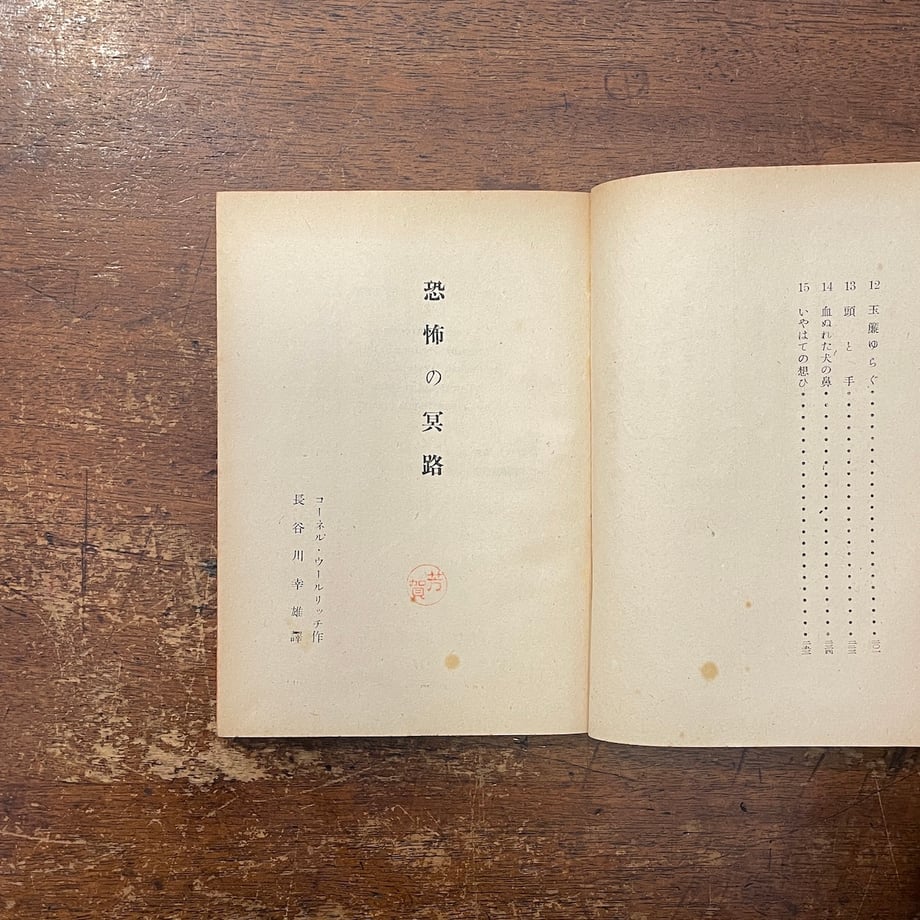 12 玉簾ゆらぐ
13 頭と手
14 血ぬれた犬の鼻
15 いやはての想ひ
恐怖の冥路
芳賀
コーネル・ウールリッチ作
長谷川幸雄譯